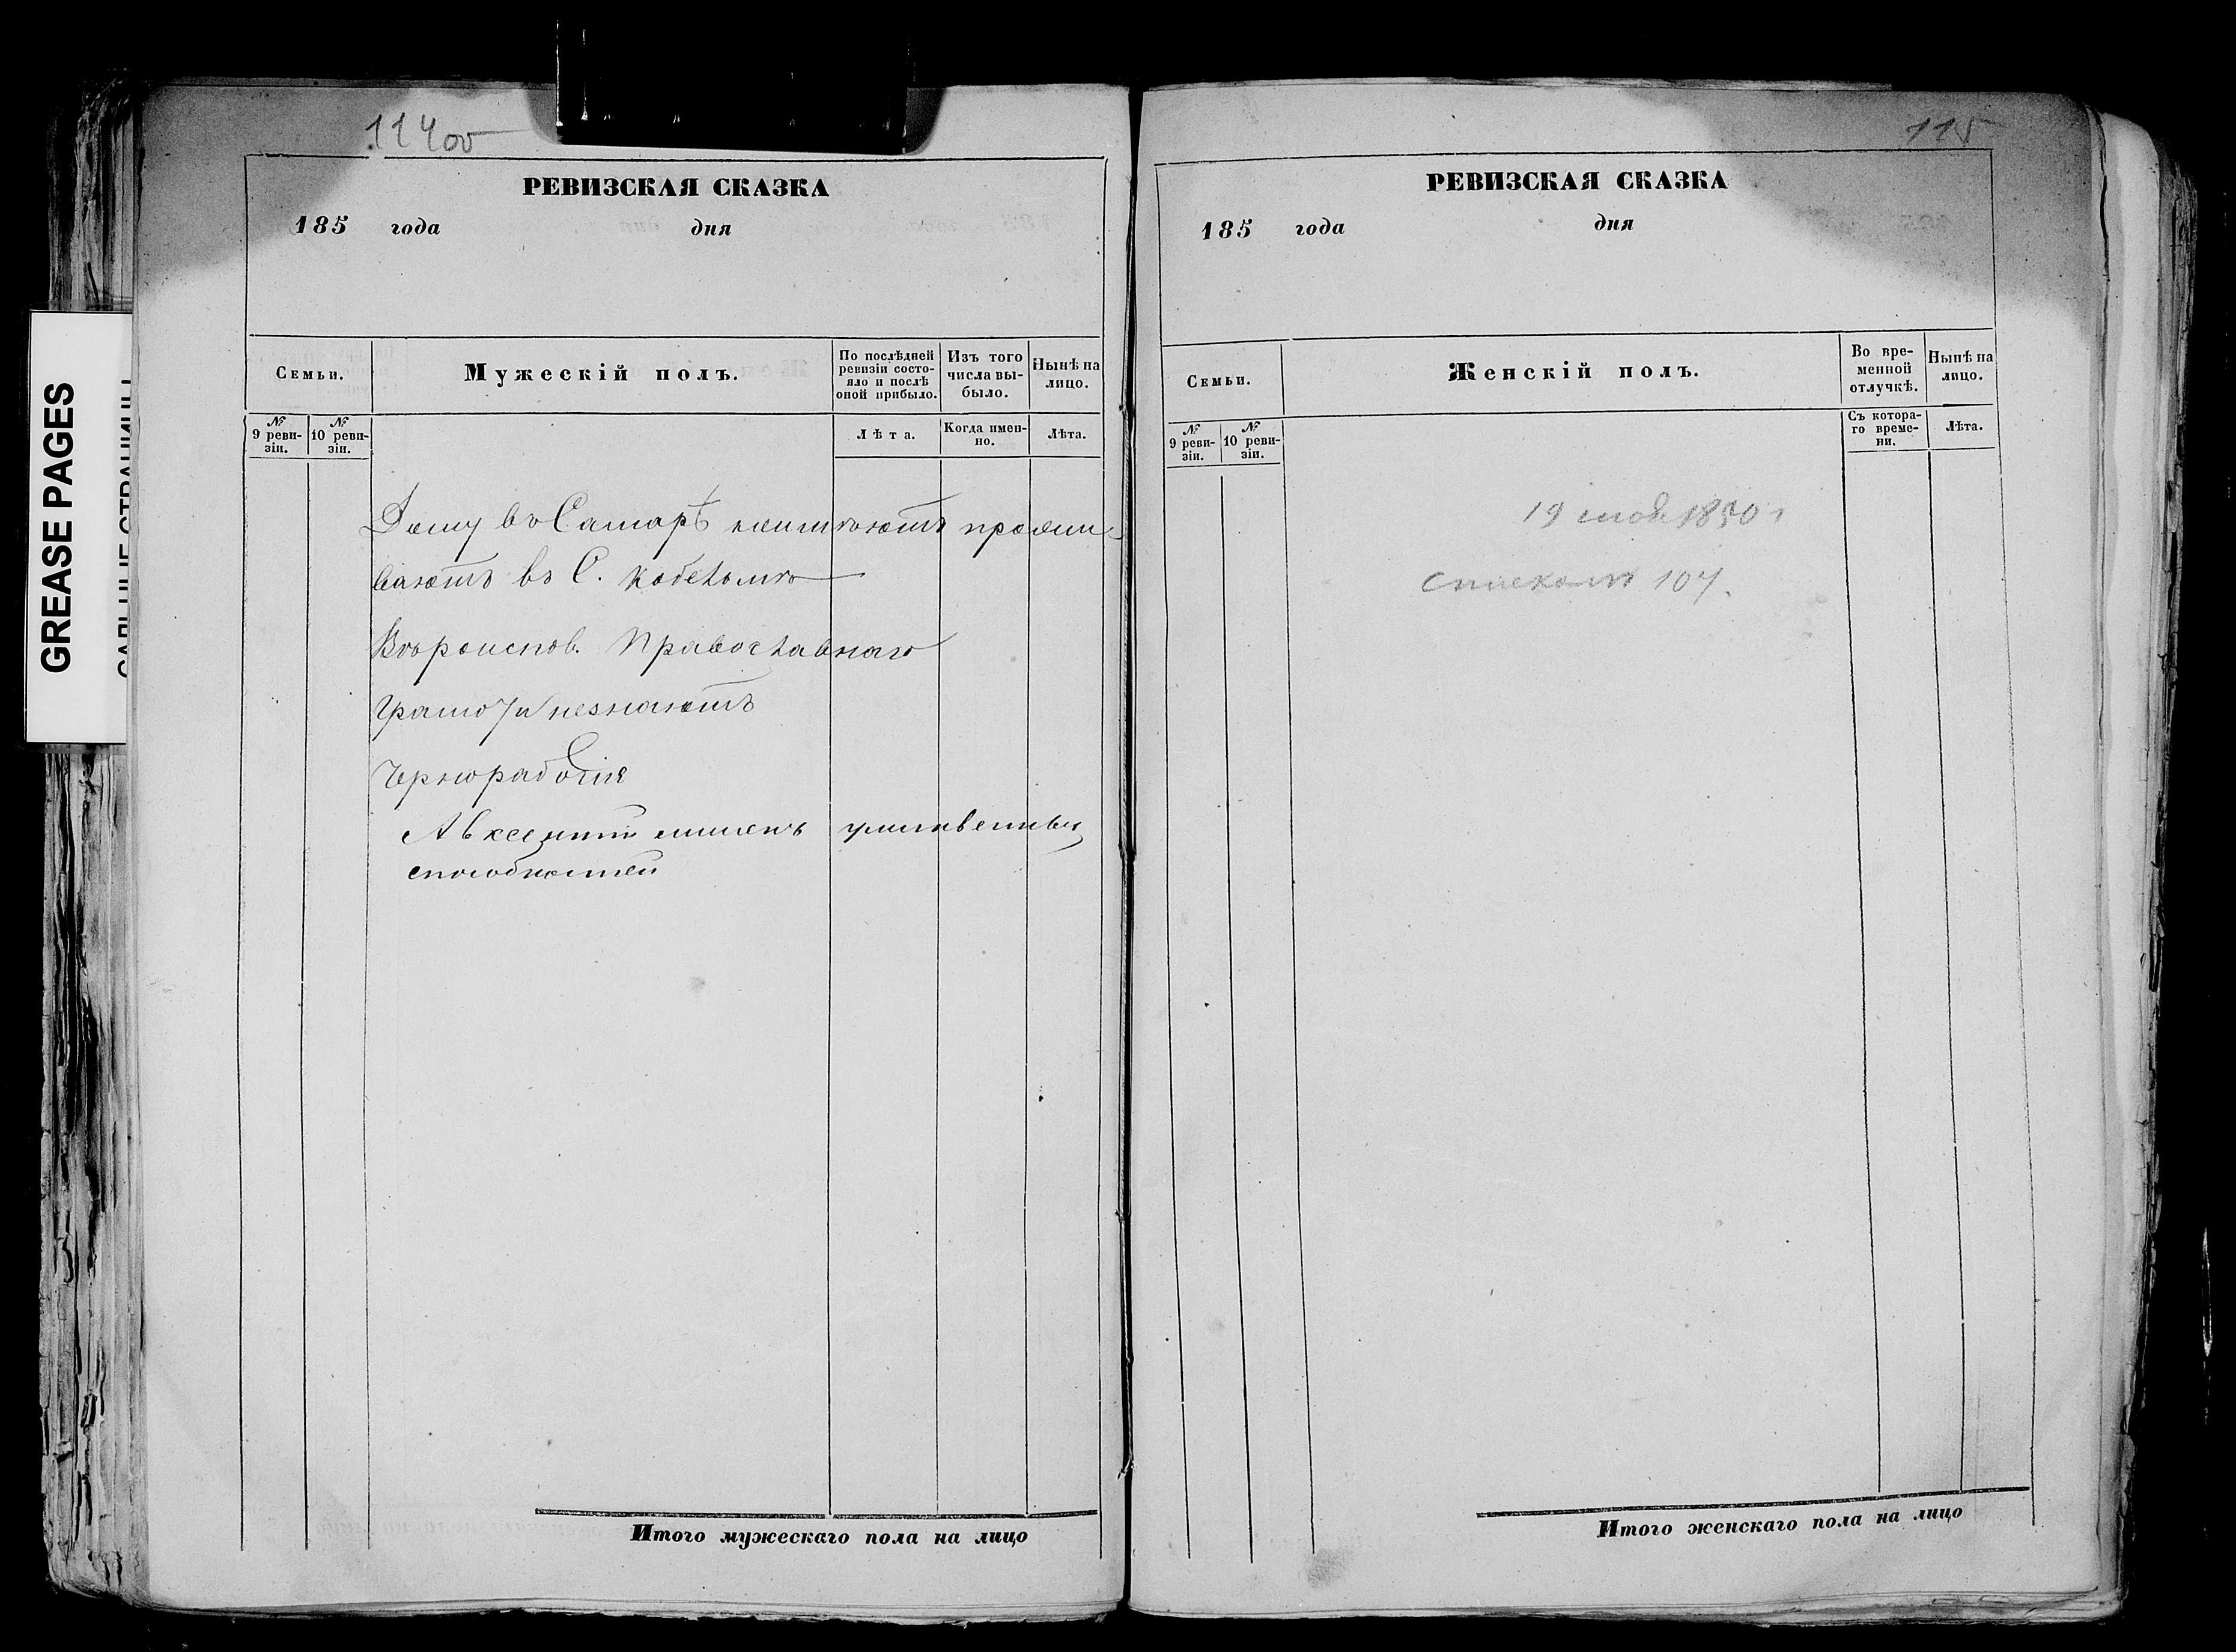 GREASE PAGES
САЛЬНЫЕ СТРАНИЦЫ
114 об
РЕВИЗСКАЯ СКАЗКА
185 года дня
Семьи.
Мужескій полъ.
По послѣдней ревизіи состояло и послѣ оной прибыло.
Изъ того числа выбыло.
Нынѣ на лицо.
№ 9 ревизіи.
№ 10 ревизіи.
Лѣта.
Когда именно.
Лѣта.
Дому въ Самарѣ неимѣютъ прожи-
ваютъ въ С.
Вѣроиспов. Православнаго
Грамоты незнаютъ
Чернорабочіе
Авксентій лишенъ умственныхъ
способностей
Итого мужескаго пола на лицо
115
РЕВИЗСКАЯ СКАЗКА
185 года дня
Семьи.
Женскій полъ.
Во временной отлучкѣ.
Нынѣ на лицо.
№ 9 ревизіи.
№ 10 ревизіи.
Съ котораго времени.
Лѣта.
19 1850 г
107.
Итого женскаго пола на лицо